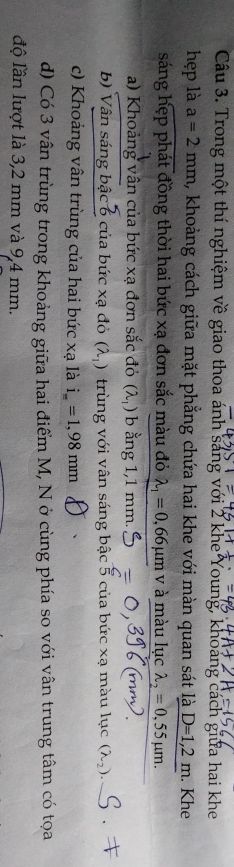 Câu 3. Trong một thí nghiệm về giao thoa ánh sáng với 2 khe Young, khoảng cách giữa hai khe
hẹp là a = 2 mm, khoảng cách giữa mặt phẳng chứa hai khe với màn quan sát là D=1,2 m. Khe
sáng hẹp phát đồng thời hai bức xạ đơn sắc màu đỏ λ₁ = 0,66μm v à màu lục λ₂ = 0,55 μm.
a) Khoảng vân của bức xạ đơn sắc đỏ (λ₁) b ằng 1,1 mm. S = 0,396 (mm).
b) Vân sáng bậc 6 của bức xạ đỏ (λ₁) trùng với vân sáng bậc 5 của bức xạ màu lục (λ₂). S.
c) Khoảng vân trùng của hai bức xạ là i≡ = 1,98 mm Đ
d) Có 3 vân trùng trong khoảng giữa hai điểm M, N ở cùng phía so với vân trung tâm có tọa
độ lần lượt là 3,2 mm và 9,4 mm.